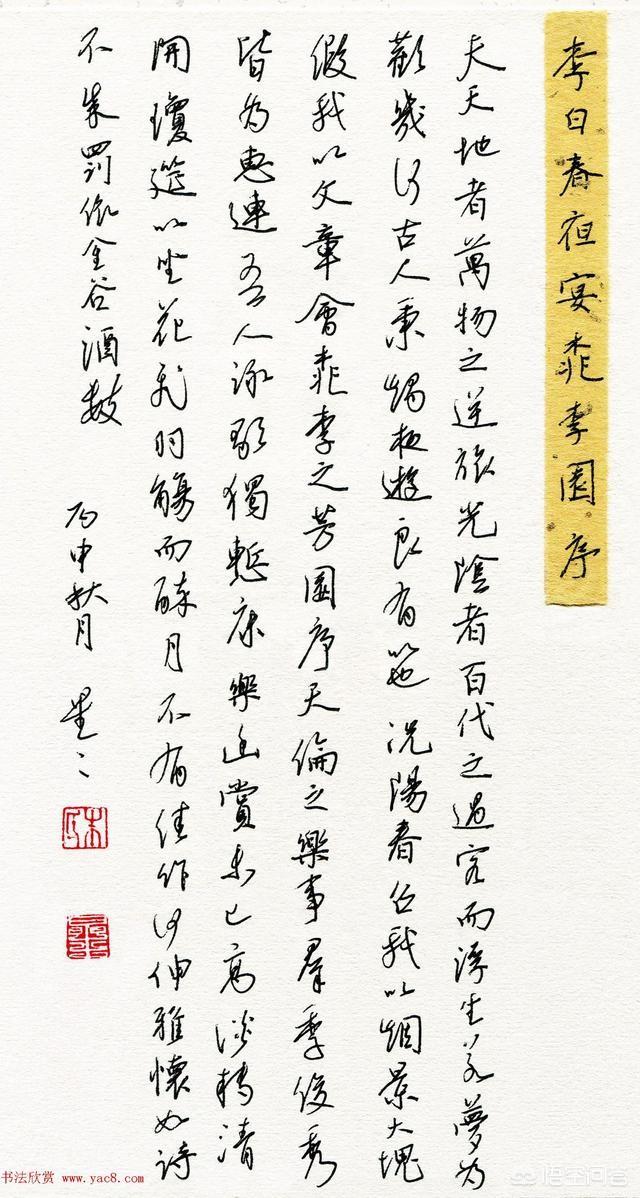 李白春夜宴桃李園序
夫天地者萬物之逆旅光陰者百代之過客而浮生若夢為
歡幾何古人秉燭夜遊良有以也況陽春召我以烟景大塊
假我以文章會桃李之芳園序天倫之樂事羣季俊秀
皆為惠連吾人詠歌獨慙康樂幽賞未已高談轉清
開瓊筵以坐花飛羽觴而醉月不有佳作何伸雅懷如詩
不成罰依金谷酒數 丙申秋月
书法欣赏 www.yac8.com
悟空问答